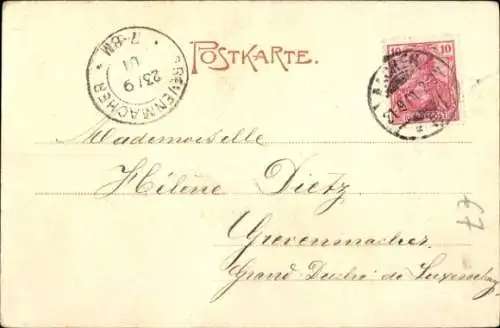 POSTKARTE.
GREVENMACHER
7-8M
23/9
01
10 10
AACHEN
Mademoiselle
Hélène Dietz
Grevenmacher
Grand Duché de Luxembourg